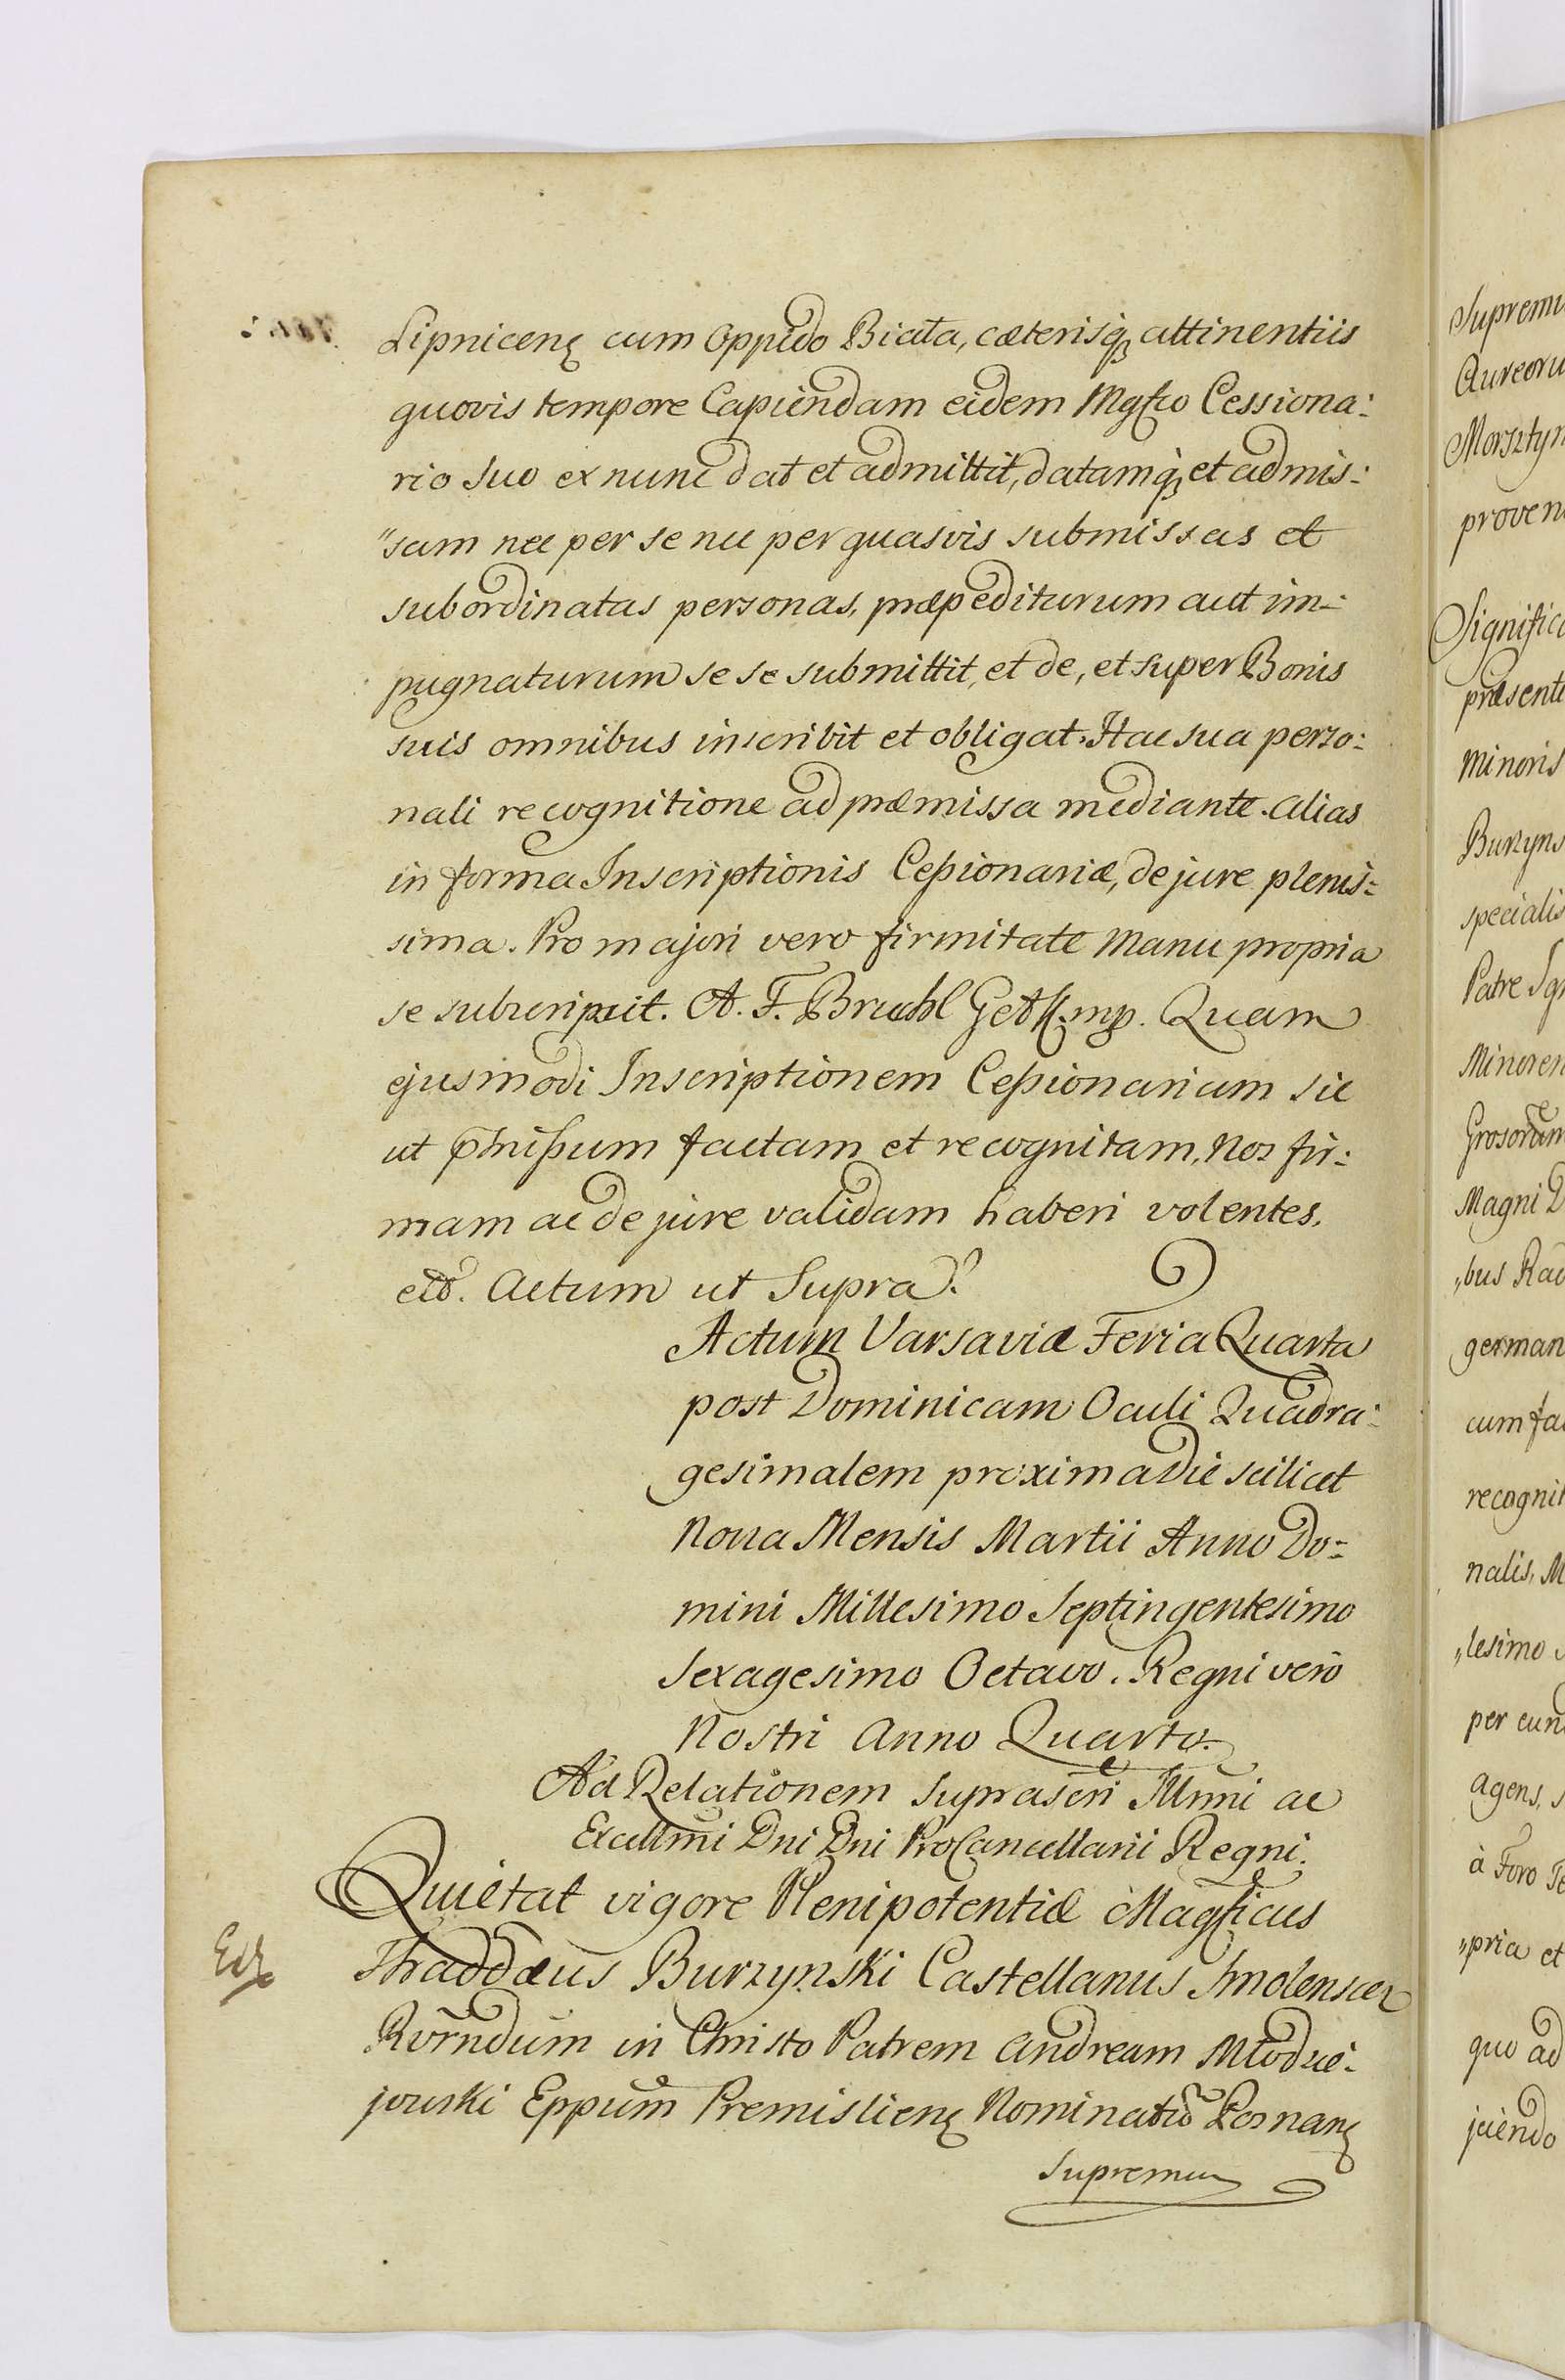 Lipnicenę cum Oppido Biała, cæterisqꝫ attinentiis
quovis tempore Capiendam eidem Mgfco Cessiona:
rio Suo ex nunc dat et admittit, datamqꝫ et admis:
"sam nec per se nec per quasvis submissas et
subordinatas personas, præpediturum aut im-:
pugnaturum se se submittit, et de, et super Bonis
suis omnibus inscribit et obligat. Hac sua perso:
nali recognitione ad præmissa mediante. alias
in forma Inscriptionis Ceßionariæ, de jure plenis:
sima. Pro majori vero firmitate manu propria
se subscripsit. A. F. Bruhl mp. Quam
ejusmodi Inscriptionem Ceßionariam sic
ut p̄mißum factam et recognitam, Nos fir:
mam ac de jure validam haberi volentes.
etc. Actum ut Supra.
Actum Varsaviæ Feria Quarta
post Dominicam Oculi Quadra:
gesimalem proxima Die scilicet
Nona Mensis Martii Anno Do:
mini Millesimo Septingentesimo
Sexagesimo Octavo. Regni vero
Nostri Anno Quarto.
Ad Relationem suprascri Illmi ac
Excellmi Dni Dni ProCancellarii Regni.
Quietat vigore Plenipotentiæ Magficus
Thaddæus Burzynski Castellanus Smolenscen
Rvrndum in Christo Patrem Andream Młodzie:
jowski Eppum Premislienę Nominatū Posnanę
Supremum
Supremu
Aureoru
Morsztyn
proven
Significa
præsente
Minoris
Burzyns
specialis
Patre Ign
Minoren
Grosorum
Magni D
„bus Rad
german
cum fa
recognit
nalis, M
„lesimo
per eund
agens,
à Foro Te
„pria et
quo ad
jciendo